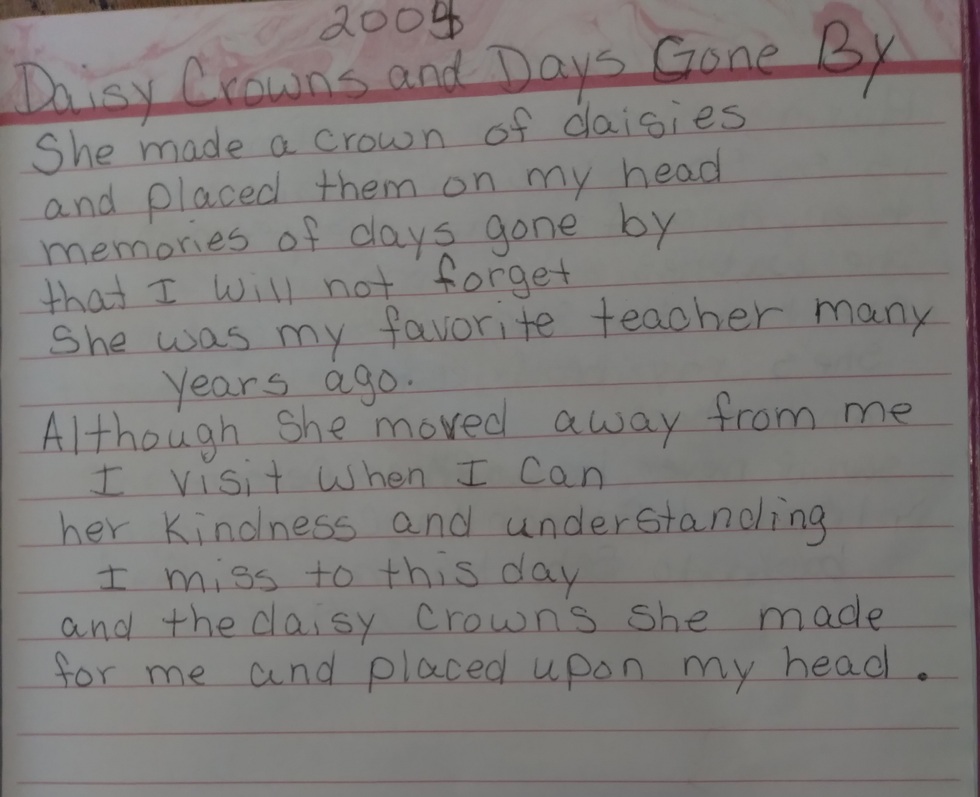 Daisy Crowns and Days Gone By
She made a crown of daisies
and placed them on my head
memories of days gone by
that I will not forget
She was my favorite teacher many
years ago.
Although She moved away from me
I visit when I can
her kindness and understanding
I miss to this day
and the daisy crowns she made
for me and placed upon my head.